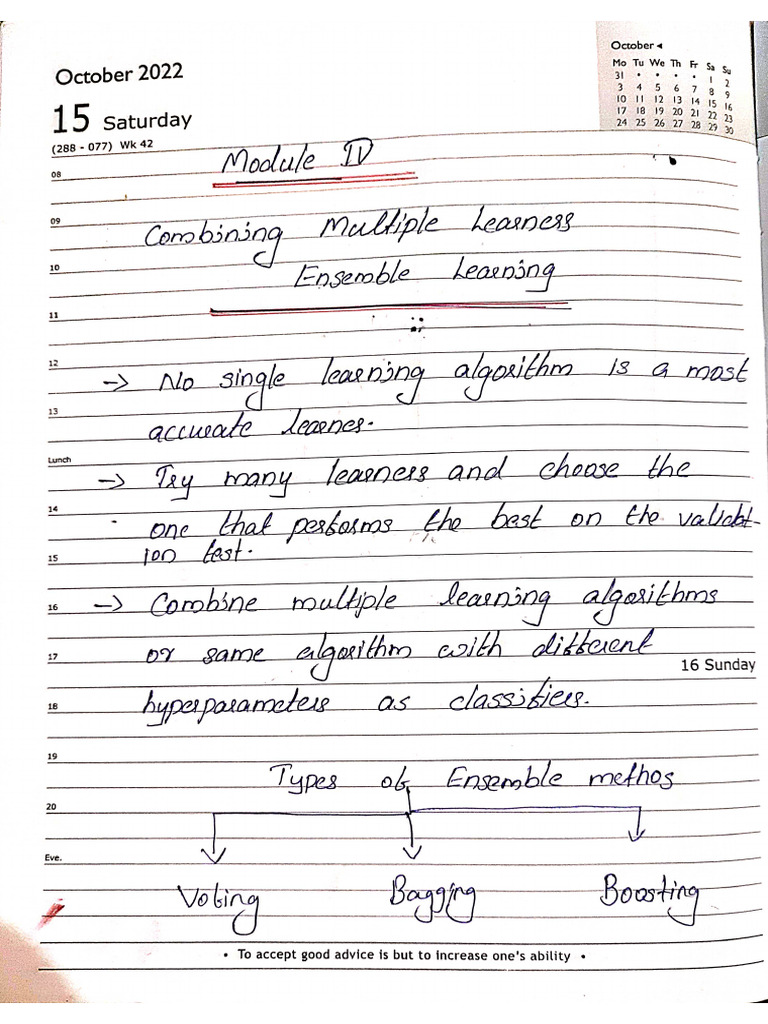 October 2022
October ◂
Mo Tu We Th Fr Sa Su
31 • • • • 1 2
3 4 5 6 7 8 9
10 11 12 13 14 15 16
17 18 19 20 21 22 23
24 25 26 27 28 29 30
15 Saturday
(288 - 077) Wk 42
Module IV
08
09
Combining Multiple Learners
10
Ensemble Learning
11
12
→ No single learning algorithm is a most
13
accurate learner.
Lunch
→ Try many learners and choose the
14
one that performs the best on the validat-
15
ion test.
16
→ Combine multiple learning algorithms
17
or same algorithm with different
16 Sunday
18
hyperparameters as classifiers.
19
Types of Ensemble methos
20
Eve.
Voting Bagging Boosting
• To accept good advice is but to increase one's ability •